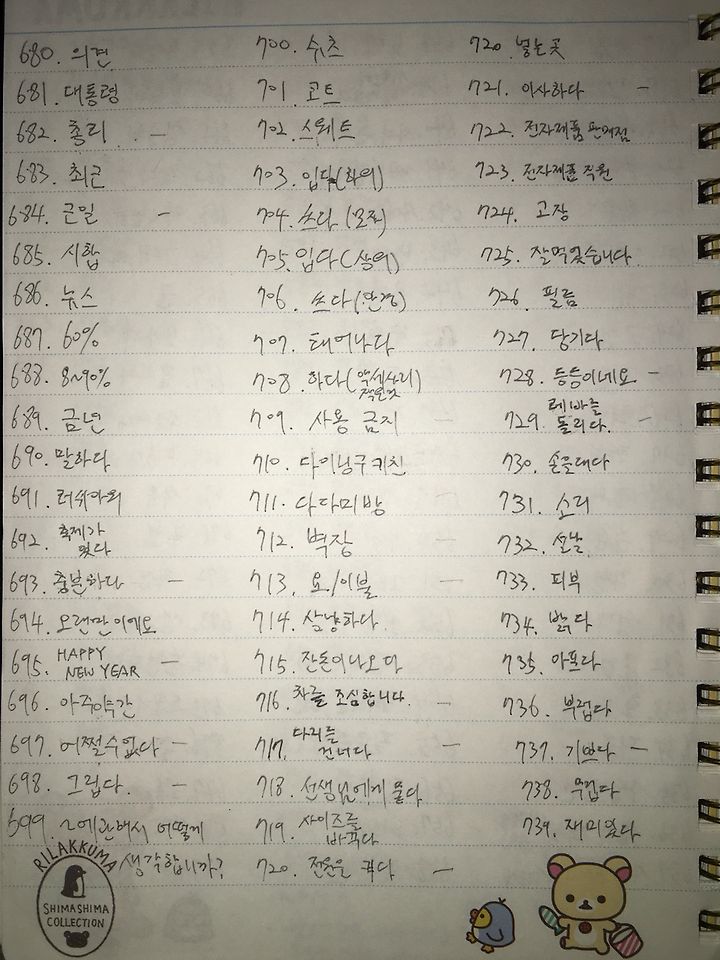 680. 의견
681. 대통령
682. 총리 —
683. 최근
684. 근일 —
685. 시합
686. 뉴스
687. 60%
688. 8~90%
689. 금년
690. 말하다
691. 러쉬아워
692. 축제가
있다
693. 충분하다 —
694. 오랜만이에요
695. HAPPY
NEW YEAR —
696. 아주약간
697. 어쩔수없다 —
698. 그립다. —
599. ~에관해서 어떻게
생각합니까?
RILAKKUMA
SHIMASHIMA
COLLECTION
700. 슈츠
701. 코트
702. 스웨트 —
703. 입다(하의)
704. 쓰다 (모자)
705. 입다(상의)
706. 쓰다 (안경)
707. 태어나다
708. 하다(악세사리)
709. 사용 금지 —
710. 다이닝구키친
711. 다다미방 —
712. 벽장
713. 요/이불 —
714. 상냥하다
715. 잔돈이나오다
716. 차를 조심합니다. —
717. 다리를
건너다 —
718. 선생님에게 묻다
719. 사이즈를
바꾸다
720. 전원을 켜다 —
720. 넣는곳
721. 이사하다 —
722. 전자제품 판매점
723. 전자제품 직원
724. 고장
725. 잘먹었습니다
726. 필름
727. 당기다
728. 등등이네요 —
729. 레바를
돌리다. —
730. 손을대다
731. 소리
732. 설날
733. 피부
734. 밝다
735. 아프다
736. 부럽다
737. 기쁘다 —
738. 무겁다
739. 재미있다